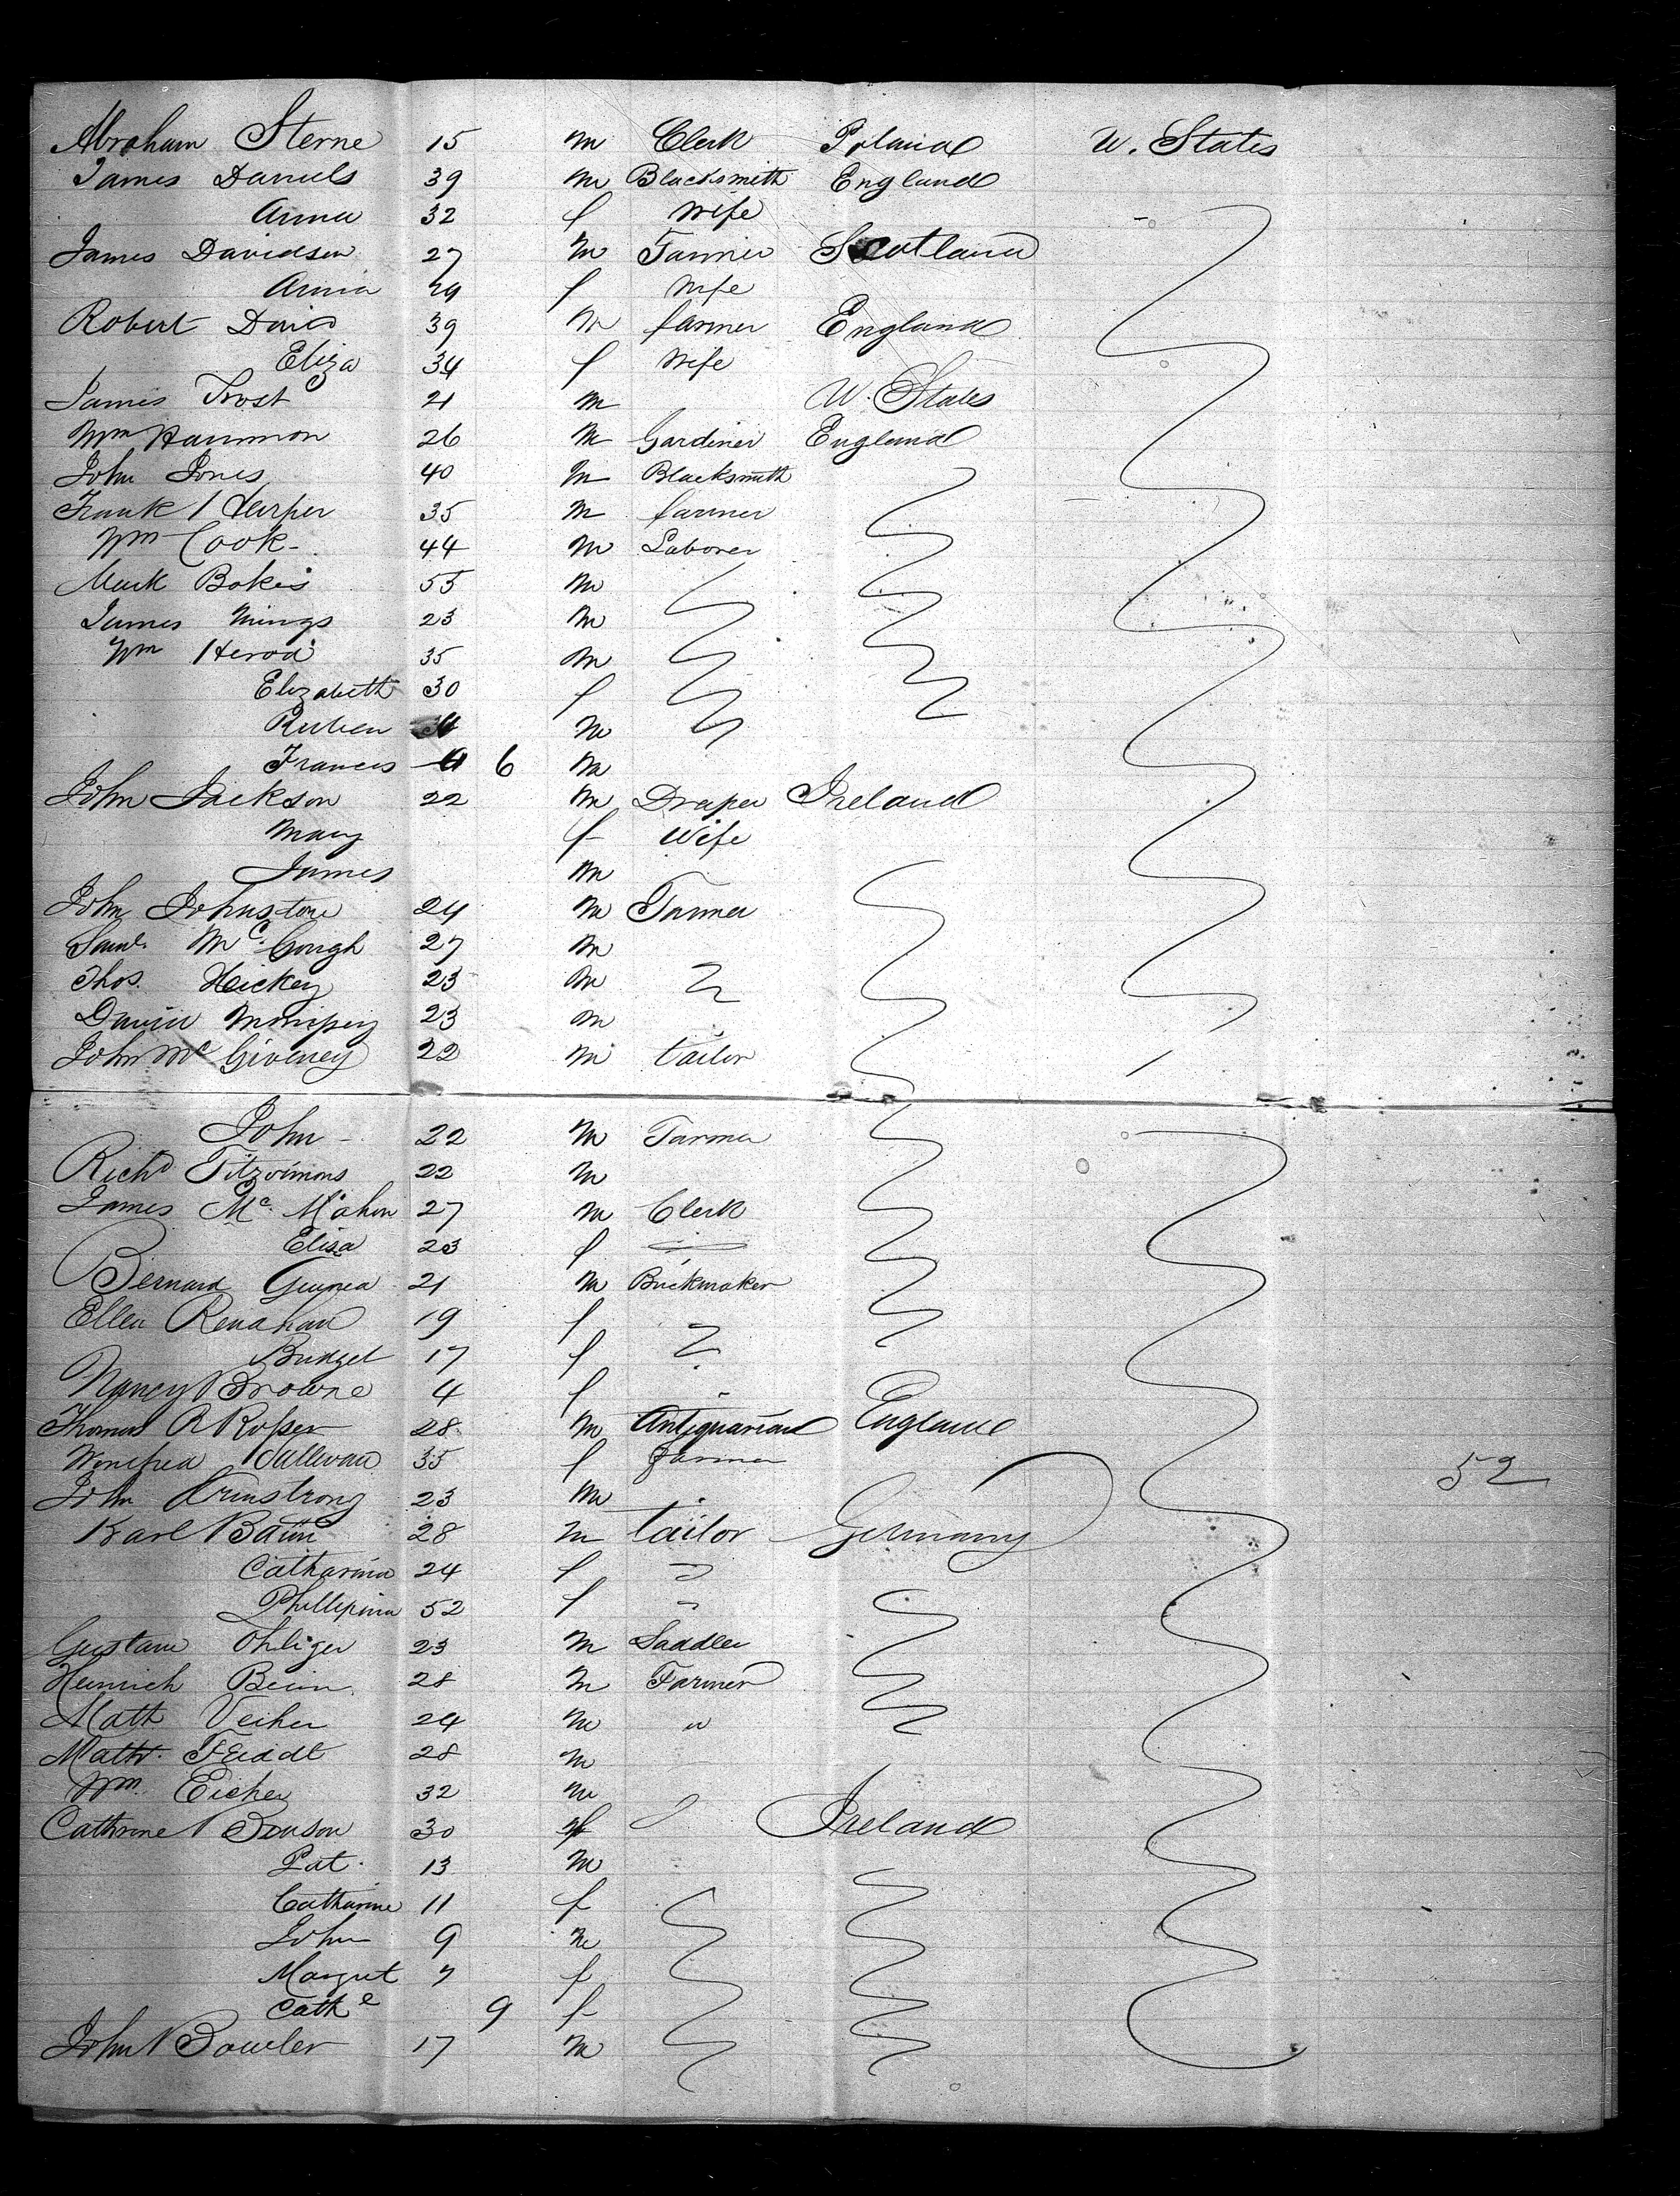 Abraham Sterne 15 m Clerk Poland U. States
James Daniels 39 m Blacksmith England
Anna 32 f Wife
James Davidson 27 m Farmer Scotland
Anna 29 f Wife
Robert David 39 m farmer England
Eliza 34 f Wife
James Frost 21 m U. States
Wm Hammon 26 m Gardiner England
John Jones 40 m Blacksmith
Frank Harper 35 m farmer
Wm Cook 44 m Laborer
Mark Bokes 55 m
James Mings 23 m
Wm Herod 35 m
Elizabeth 30 f
Ruben m
Francis 6 m
John Jackson 22 m Draper Ireland
Mary f Wife
James m
John Johnstone 24 m Farmer
Saml. McGough 27 m
Thos. Hickey 23 m
David 23 m
John McGiveney 22 m tailor
John 22 m Farmer
Richd Fitzsimons 22 m
James Mc Mahon 27 m Clerk
Elisa 23 f
Bernard 21 m Brickmaker
Ellen Renahan 19 f
Bridget 17 f
Nancy Browne 4 f
Thomas R Rosser 28 m Antiquarian England
Winefred Sullivan 35 f farmer 52
John Armstrong 23 m
Karl Baum 28 m tailor Germany
Catharina 24 f "
Phillipina 52 f "
Gustave Ohliger 23 m Saddler
Heinrich 28 m Farmer
Math 24 m "
Math. Feiddt 28 m
Wm. Eicher 32 m
Cathrine 30 f Ireland
Pat. 13 m
Catharine 11 f
John 9 m
Margret 7 f
Cathe 9 f
John Bowler 17 m